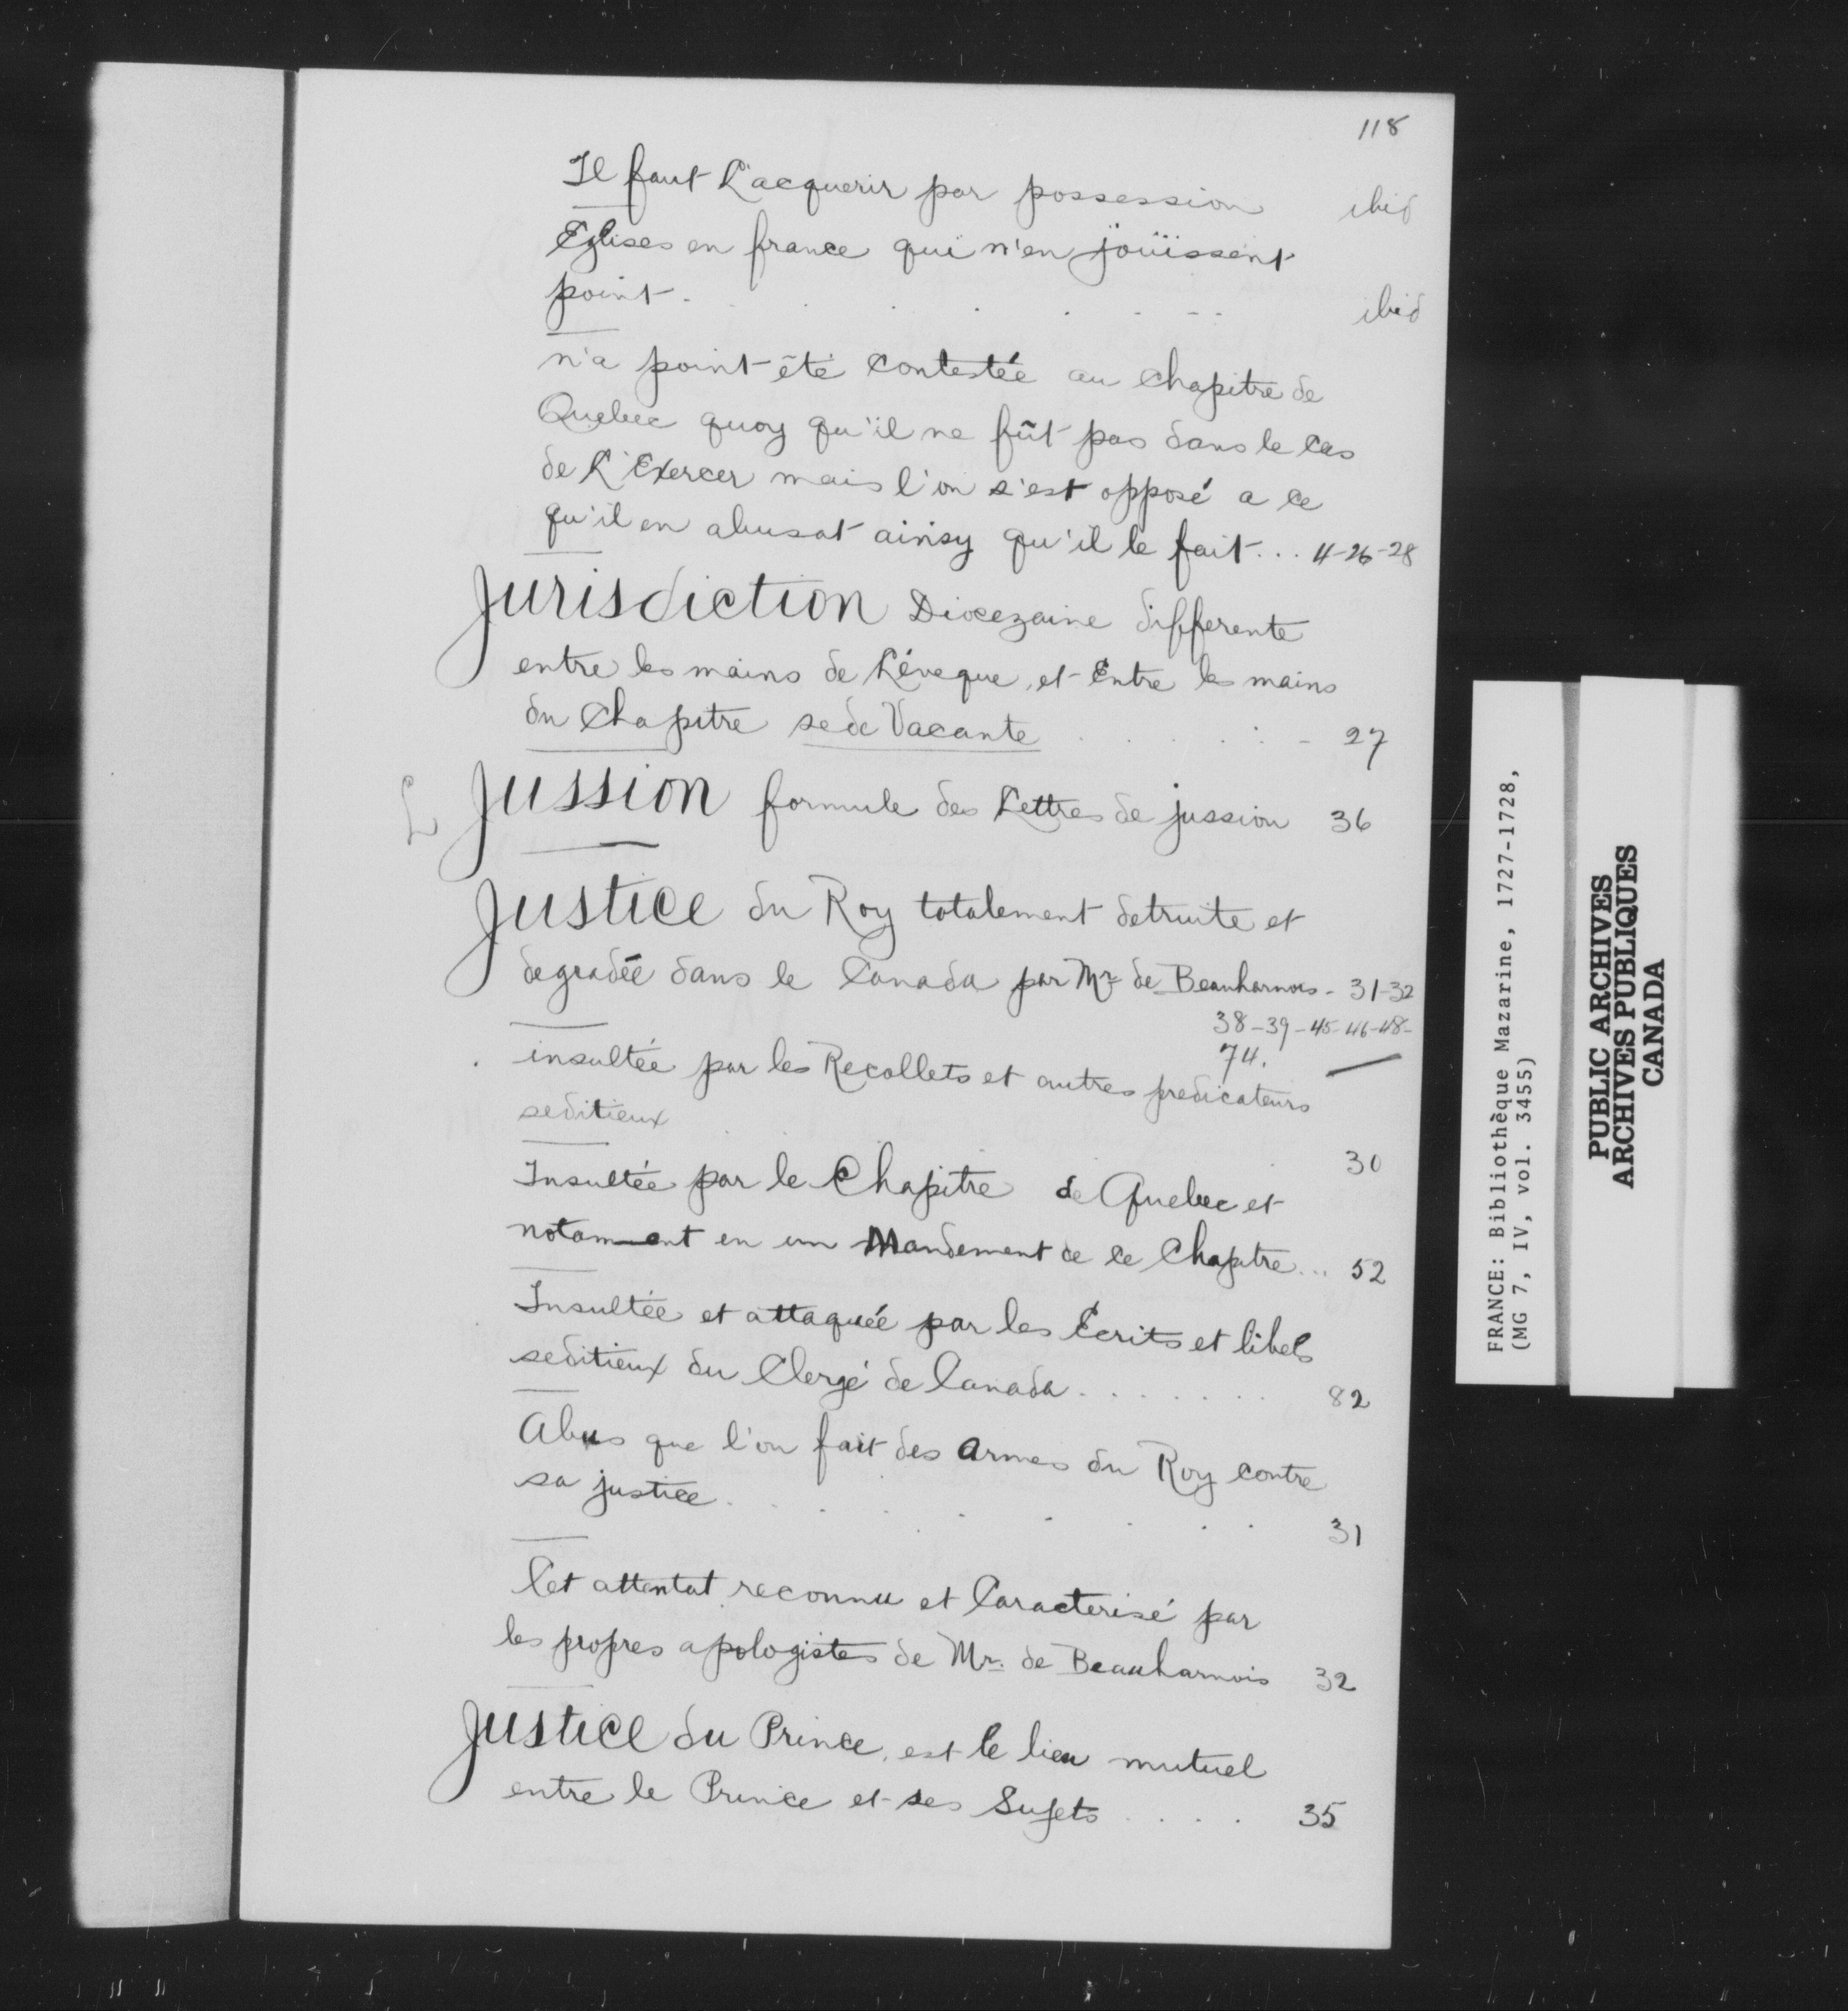 118
Il faut L'acquerir par possession ibid
Eglises en france qui n'en joüissent
point . . . . . . ibid
n'a point été Contestée au Chapitre de
Quebec quoy qu'il ne fût pas dans le Cas
de L'Exercer mais l'on s'est opposé a ce
qu'il en abusat ainsy qu'il le fait... 11-26-28
Jurisdiction Diocezaine differente
entre les mains de L'éveque, et Entre les mains
du Chapitre sede Vacante . . . . . 27
L Jussion formule des Lettres de jussion 36
Justice du Roy totalement detruite et
degradée dans le Canada par Mr de Beauharnois - 31-32
38-39-45-46-48-
74.
insultée par les Recollets et autres predicateurs
seditieux 30
Insultée par le Chapitre de Quebec et
notamment en un Mandement de ce Chapitre... 52
Insultée et attaquée par les Ecrits et libels
seditieux du Clergé de Canada . . . . . . . 82
Abus que l'on fait des Armes du Roy contre
sa justice . . . . . . . 31
Cet attentat reconnu et Caracterisé par
les propres apologistes de Mr. de Beauharnois 32
Justice du Prince, est le lien mutuel
entre le Prince et ses Sujets . . . . 35
FRANCE: Bibliothèque Mazarine, 1727-1728,
(MG 7, IV, vol. 3455)
PUBLIC ARCHIVES
ARCHIVES PUBLIQUES
CANADA